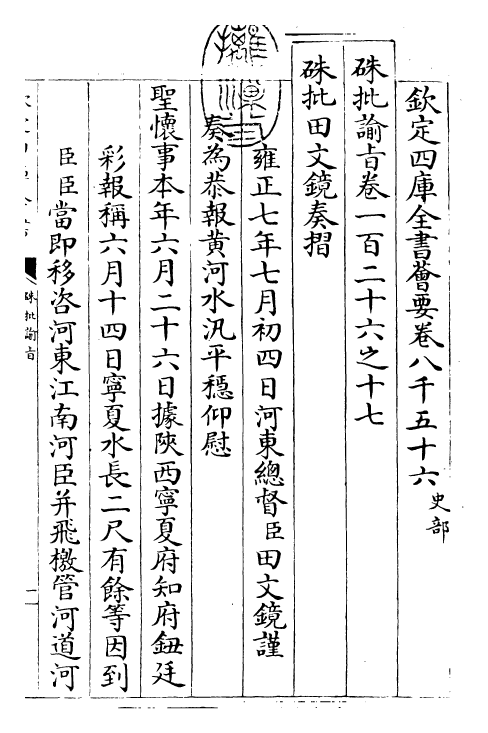 欽定四庫全書薈要卷八千五十六 史部
硃批諭旨卷一百二十六之十七
硃批田文鏡奏摺
雍正七年七月初四日河東總督臣田文鏡謹
奏為恭報黄河水汛平穏仰慰
聖懷事本年六月二十六日據陜西寧夏府知府鈕廷
彩報稱六月十四日寧夏水長二尺有餘等因到
臣臣當即移咨河東江南河臣并飛檄管河道河
硃批諭旨
一